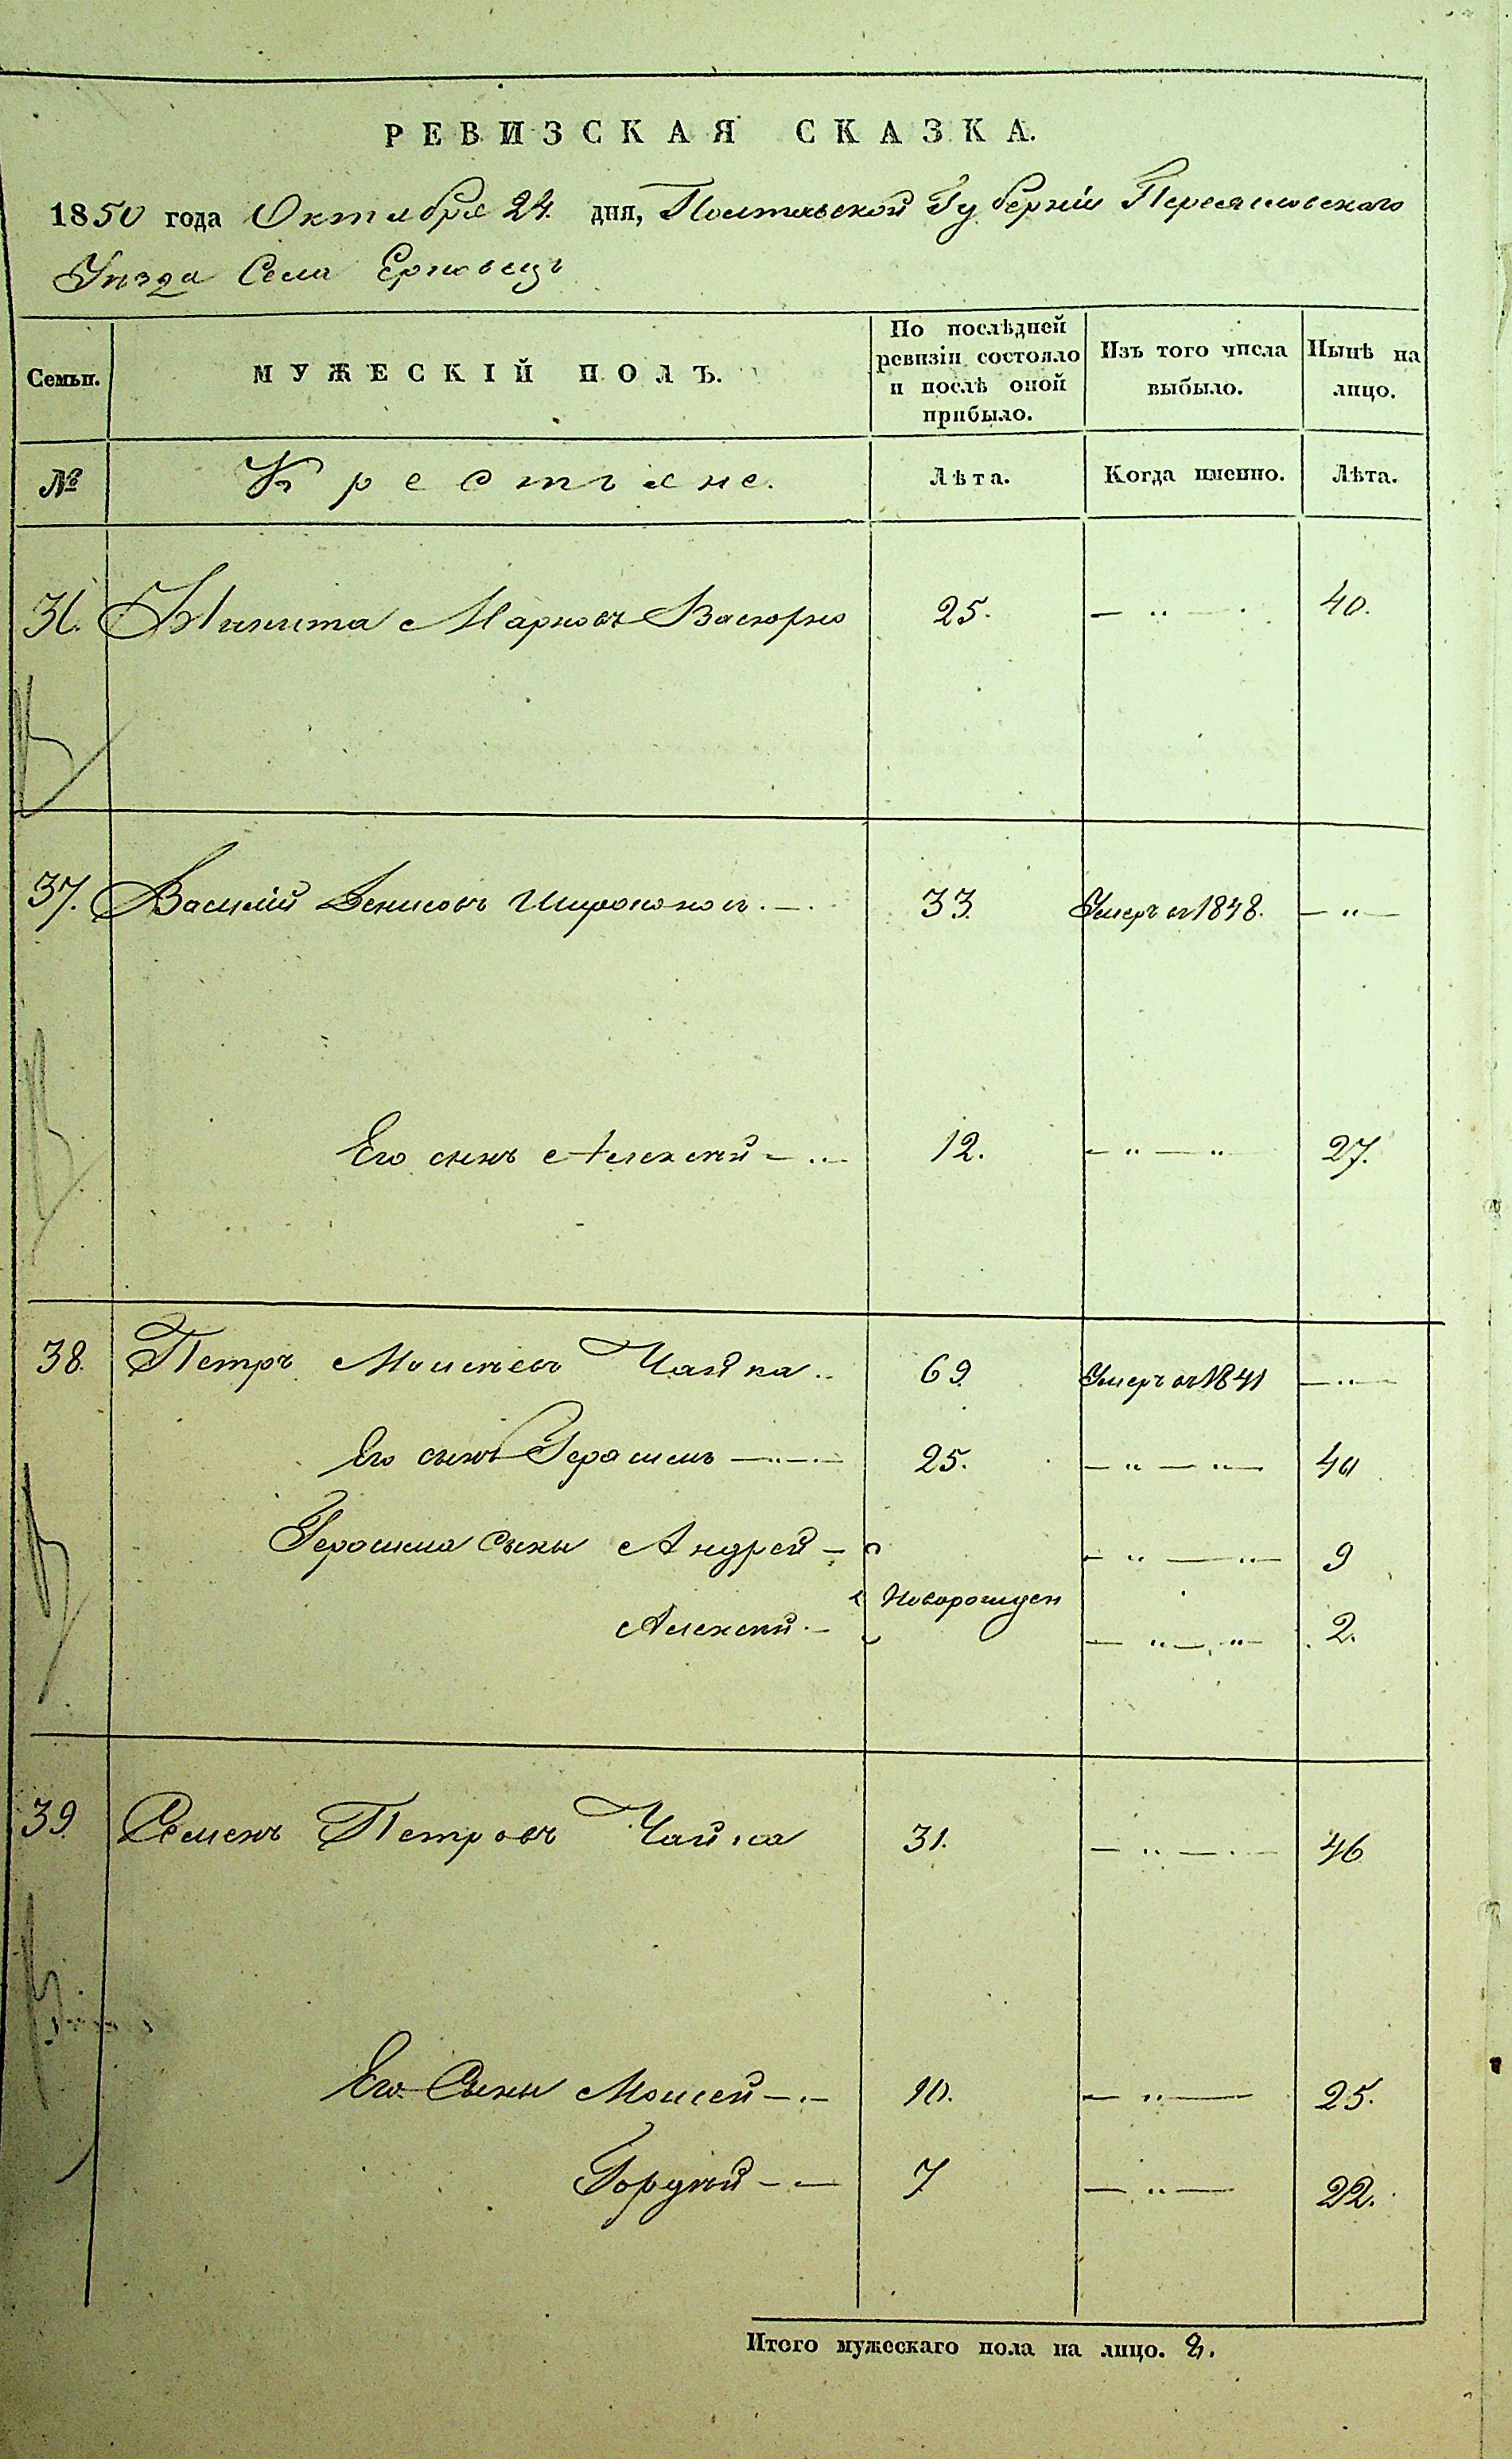 РЕВИЗСКАЯ СКАЗКА.
1850 года Октября 24. дня, Полтавской Губерніи Переяславского
Уезда Села Ерковецъ
Семьи. МУЖЕСКІЙ ПОЛЪ. По послѣдней ревизіи состояло и послѣ оной прибыло. Изъ того числа выбыло. Нынѣ на лицо.
№ Крестьяне. Лѣта. Когда именно. Лѣта.
36. Никита Марковъ 25. — " — 40.
37. Василій Денисовъ Широконосъ. — 33. Умеръ въ 1848. — " —
Его сынъ Алексѣй — 12. — " — " 27.
38. Петръ Моисѣевъ Чайка.. 69. Умеръ въ 1841 — " —
Его сынъ Герасимъ — 25. — " — " — 40
Герасима сыны Андрей — Новорожден — " — " — 9
Алексѣй. — — " — " — 2.
39. Семенъ Петровъ Чайка 31. — " — 46
Его Сыны Моисей — 10. — " — 25.
Гордѣй — 7 — " — 22.
Итого мужескаго пола на лицо. 8.